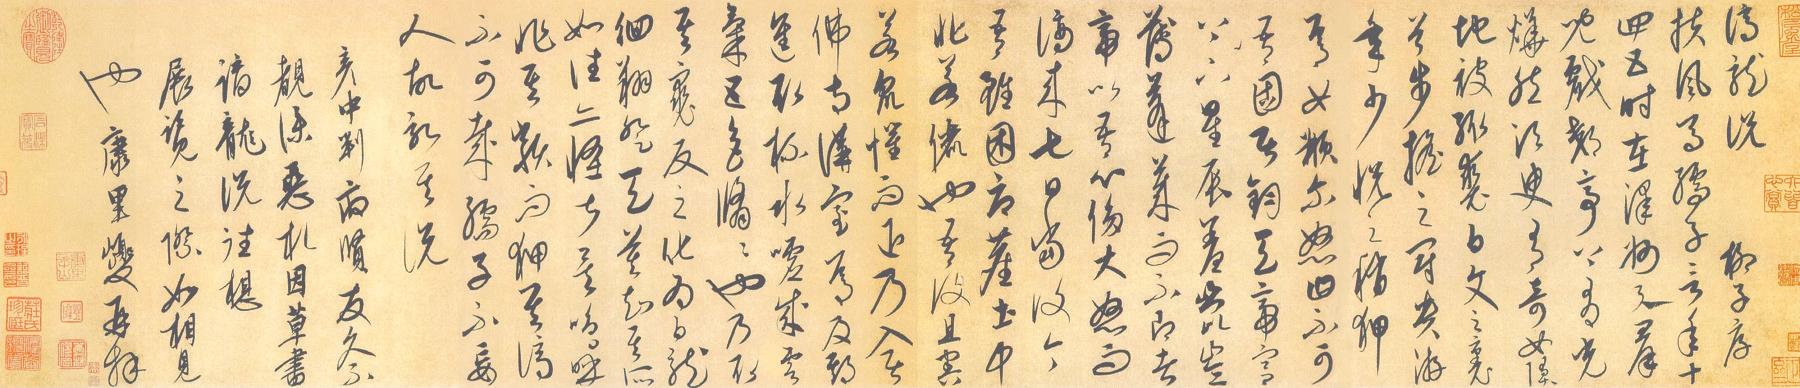 謫龍說 柳子厚
扶風馬孺子言年十
四五時在澤州與群
兒戲郊亭上有光
燁然須臾有奇女墜
地被緅裘白文之裏
首步搖之冠貴游
年少悅之稍狎
焉女頩爾怒曰不可
吾固居鈞天帝宮
下上星辰羞崑崙
薄蓬萊而不即者
帝以吾心侈大怒而
謫來七日當復今
吾雖困辱塵土中
非若儷也吾復且害
若眾懼而退乃入居
佛寺講室焉及期
進取杯水噓成雲
氣五色翛翛也乃取
其裘反之化為白龍
徊翔登天莫知其所
如往亦怪甚矣嗚呼
非其類而狎其謫
不可哉孺子不妄
人故記其說
彥中判府暌友久不
覩僕惡札因草書
謫龍說往想
展覽之際如相見
也 康里巎再拜